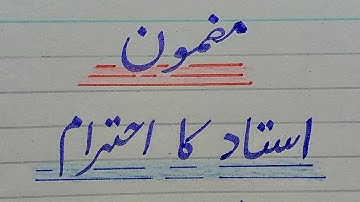 مضمون
استاد کا احترام